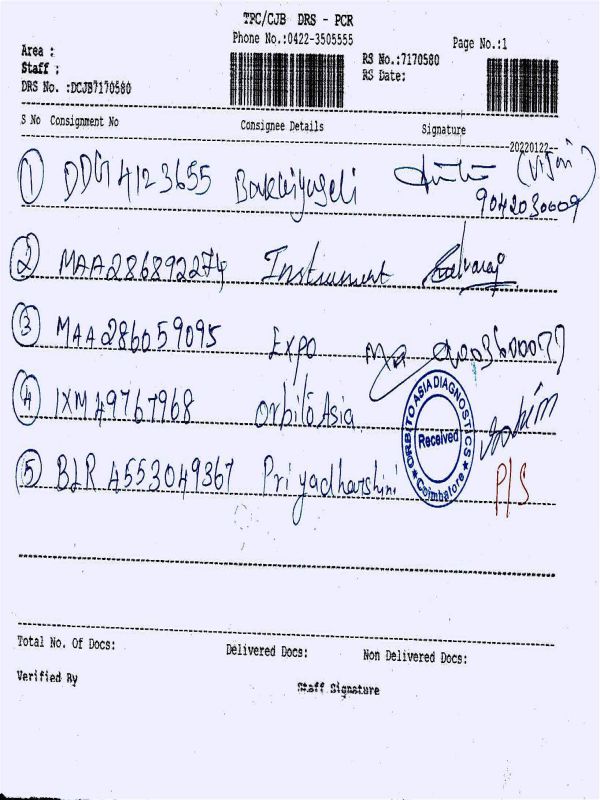 TPC/CJB DRS - PCR
Phone No.:0422-3505555
Page No.:1
Area :
Staff :
DRS No. :DCJB7170580
RS No.:7170580
RS Date:
S No Consignment No Consignee Details Signature
20220122--
1 DDG14123655
9042030009
2 MAA286892274 Instrument
3 MAA286059095 Expo
4 IXM49767968 Orbito Asia
ORBITO ASIA DIAGNOSTICS
Received
Coimbatore
5 BLR4553049367 Priyadharshini P/S
Total No. Of Docs: Delivered Docs: Non Delivered Docs:
Verified By Staff Signature